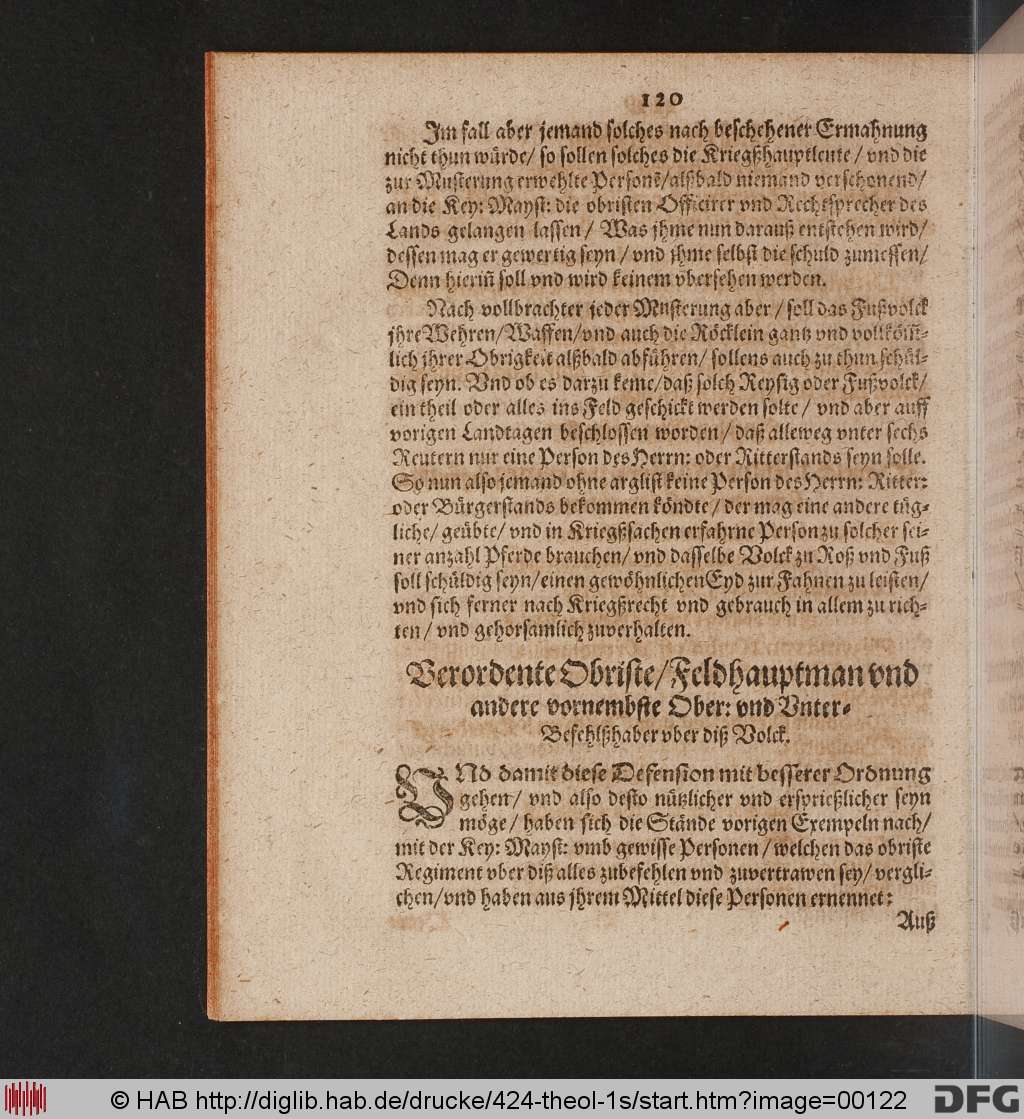 120
Im fall aber jemand solches nach beschehener Ermahnung
nicht thun würde/ so sollen solches die Kriegßhauptleute/ vnd die
zur Musterung erwehlte Personē/alßbald niemand verschonend/
an die Key: Mayst: die obristen Officirer vnd Rechtsprecher des
Lands gelangen lassen/ Was jhme nun darauß entstehen wird/
dessen mag er gewertig seyn/ vnd jhme selbst die schuld zumessen/
Denn hieriñ soll vnd wird keinem vbersehen werden.
Nach vollbrachter jeder Musterung aber/ soll das Fußvolck
jhre Wehren/Waffen/vnd auch die Röcklein gantz vnd vollköm̃-
lich jhrer Obrigkeit alßbald abführen/ sollens auch zu thun schül-
dig seyn. Vnd ob es darzu keme/daß solch Reysig oder Fußvolck/
ein theil oder alles ins Feld geschickt werden solte/ vnd aber auff
vorigen Landtagen beschlossen worden/ daß alleweg vnter sechs
Reutern nur eine Person des Herrn: oder Ritterstands seyn solle.
So nun also jemand ohne arglist keine Person des Herrn: Ritter:
oder Bürgerstands bekommen köndte/ der mag eine andere tüg-
liche/ geübte/ vnd in Kriegßsachen erfahrne Person zu solcher sei-
ner anzahl Pferde brauchen/ vnd dasselbe Volck zu Roß vnd Fuß
soll schüldig seyn/einen gewöhnlichen Eyd zur Fahnen zu leisten/
vnd sich ferner nach Kriegßrecht vnd gebrauch in allem zu rich-
ten/ vnd gehorsamlich zuverhalten.
Verordente Obriste/Feldhauptman vnd
andere vornembste Ober: vnd Vnter-
Befehlßhaber vber diß Volck.
VNd damit diese Defension mit besserer Ordnung
gehen/ vnd also desto nützlicher vnd ersprießlicher seyn
möge/ haben sich die Stände vorigen Exempeln nach/
mit der Key: Mayst: vmb gewisse Personen/ welchen das obriste
Regiment vber diß alles zubefehlen vnd zuvertrawen sey/ vergli-
chen/vnd haben aus jhrem Mittel diese Personen ernennet:
Auß
© HAB http://diglib.hab.de/drucke/424-theol-1s/start.htm?image=00122
DFG